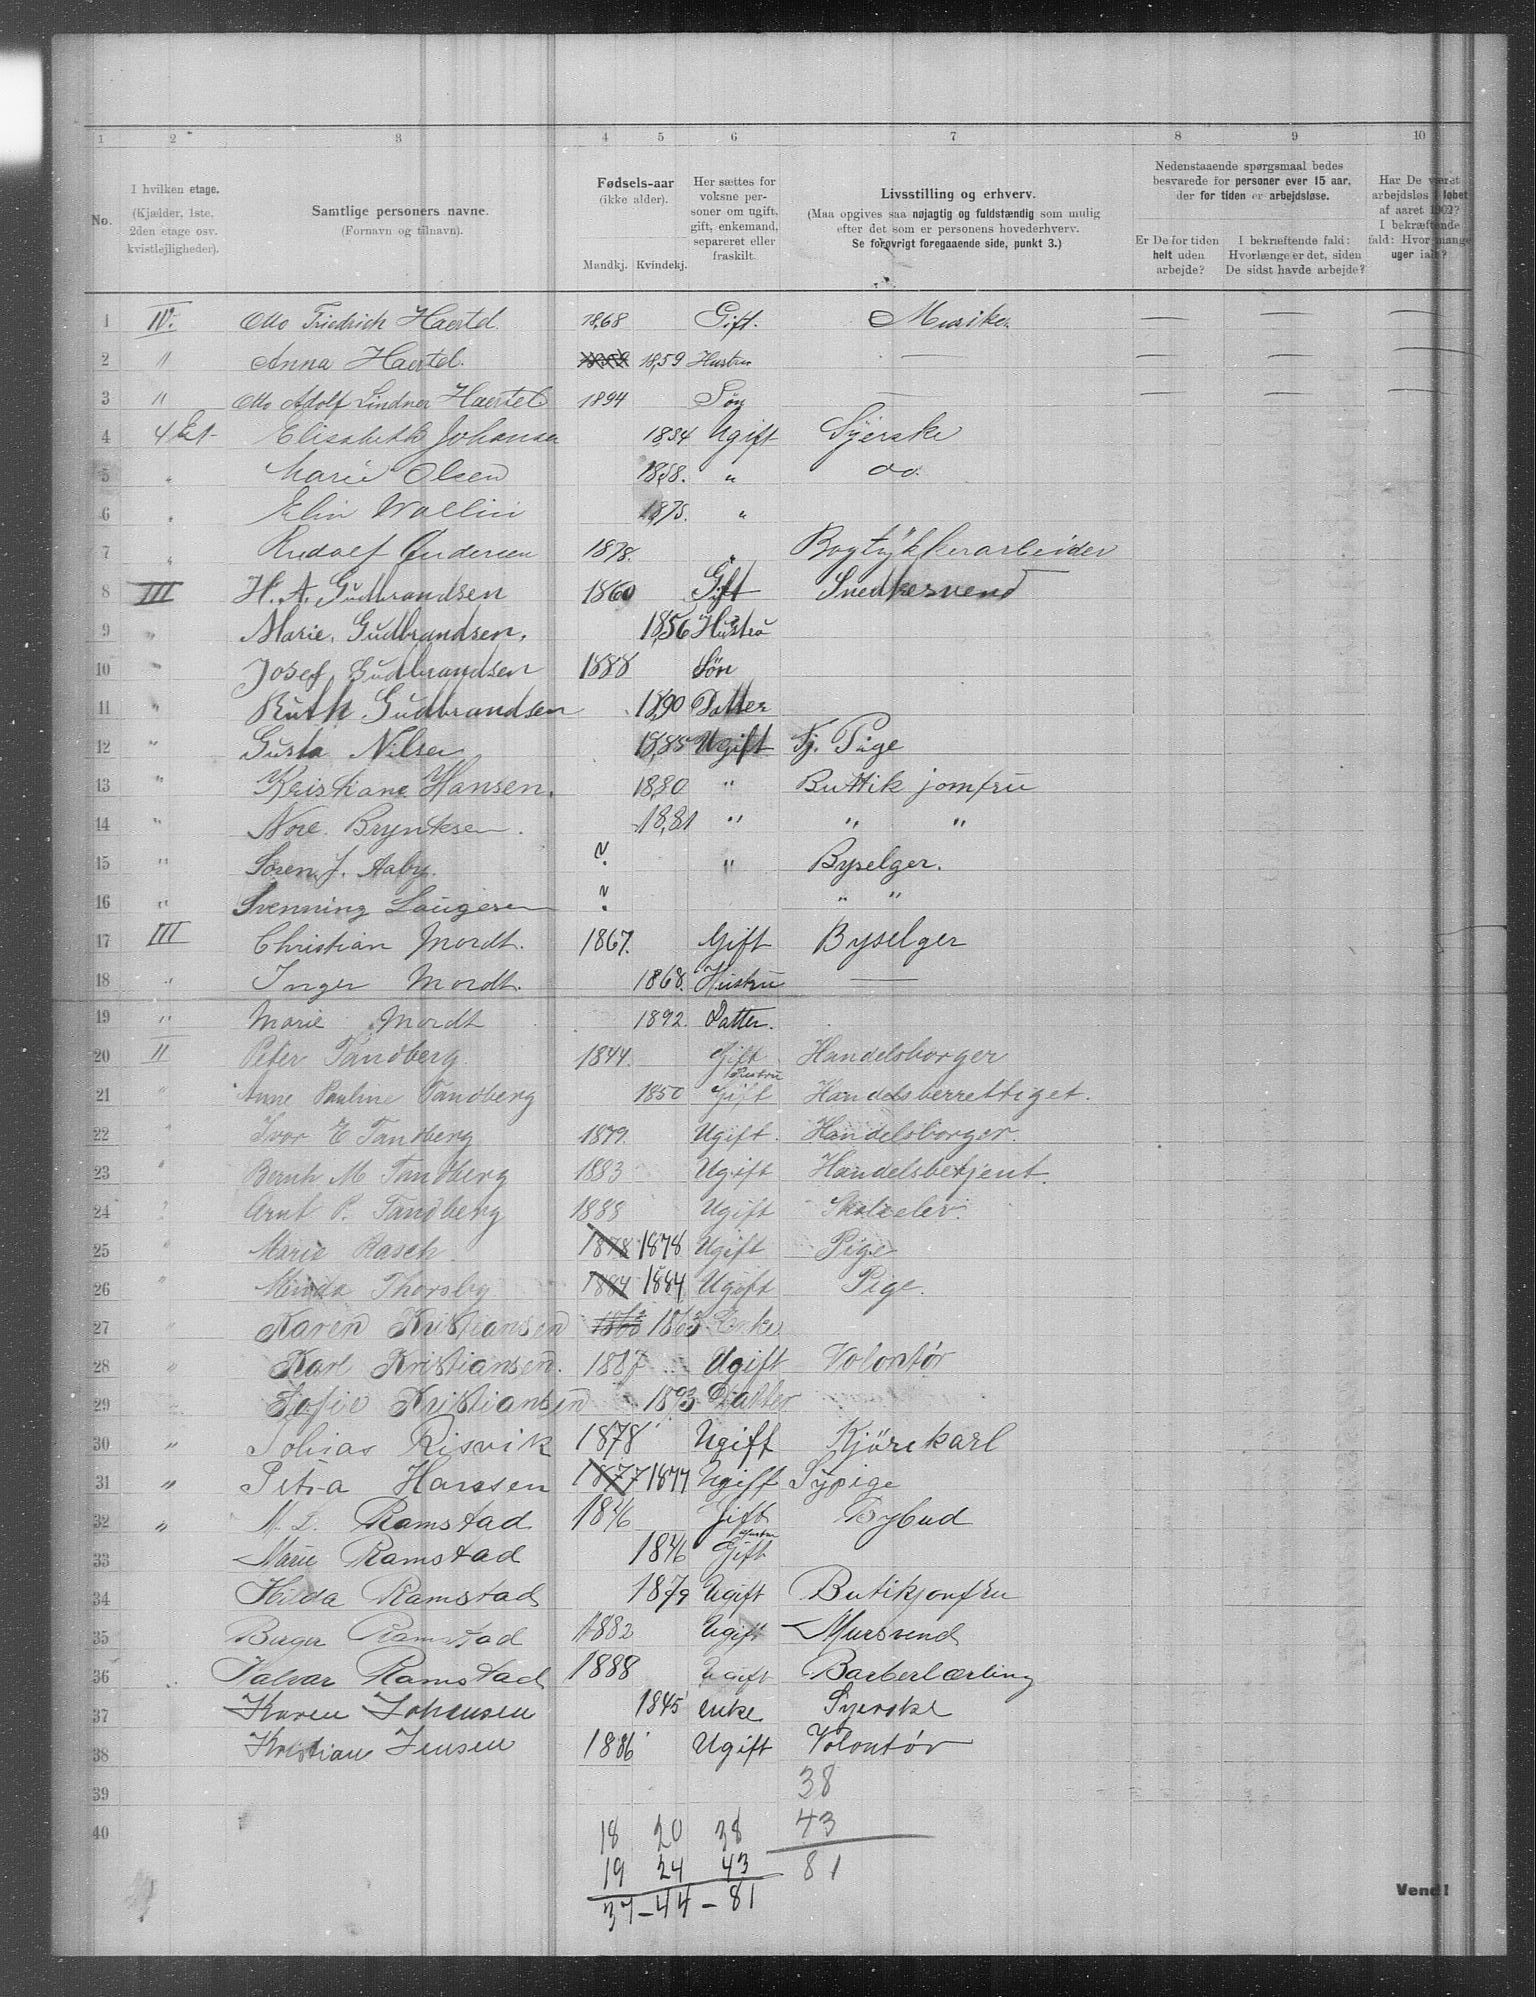 1 2 3 4 5 6 7 8 9 10
No. I hvilken etage. (Kjælder, 1ste, 2den etage osv. kvistlejligheder). Samtlige personers navne. (Fornavn og tilnavn). Fødsels-aar (ikke alder). Mandkj. Kvindekj. Her sættes for voksne personer om ugift, gift, enkemand, separeret eller fraskilt. Livsstilling og erhverv. (Maa opgives saa nøjagtig og fuldstændig som mulig efter det som er personens hovederhverv. Se forøvrigt foregaaende side, punkt 3.) Nedenstaaende spørgsmaal bedes besvarede for personer over 15 aar, der for tiden er arbejdsløse. Er De for tiden helt uden arbejde? I bekræftende fald: Hvorlænge er det, siden De sidst havde arbejde? Har De været arbejdsløs i løbet af aaret 1902? I bekræftende fald: Hvor mange uger ialt?
1 IV. Otto Friedrich Haertel. 1868 Gift. Musiker — — —
2 " Anna Haertel. 1859 Hustru — — — —
3 " Otto Adolf Lindner Haertel 1894 Søn — — — —
4 4 Et. Elisabeth Johansen 1834 Ugift Syerske
5 " Marie Olsen 1858. " do.
6 " Elin Wallin 1875. "
7 " Rudolf Andersen 1878. " Bogtrykkerarbeider
8 III H. A. Gudbrandsen 1860 Gift Snedkersvend
9 " Marie Gudbrandsen. 1856 Hustru
10 " Josef Gudbrandsen 1888 Søn
11 " Ruth Gudbrandsen 1890 Datter
12 " Gusta Nilsen 1885 Ugift Tj. Pige
13 " Kristiane Hansen. 1880 " Buttik jomfru
14 " Nore Bryntesen. 1881 " " "
15 " Søren J. Aaby. ? " Byselger.
16 " Svenning Laugesen ? " "
17 III Christian Mordt. 1867. Gift Byselger
18 " Inger Mordt. 1868. Hustru —
19 " Marie Mordt 1892. Datter.
20 II Peter Tandberg. 1844. Gift Handelsborger
21 " Anne Pauline Tandberg 1850 Hustru Gift Handelsberrettiget.
22 " Ivor E Tandberg 1879. Ugift. Handelsborger.
23 " Bernh M Tandberg 1883 Ugift Handelsbetjent.
24 " Arnt P. Tandberg 1888 Ugift Skoleelev.
25 " Marie Rasch. 1878 1878 Ugift Pige
26 " Minda Thorsby 1884 1884 Ugift Pige.
27 " Karen Kristiansen 1863 Enke
28 " Karl Kristiansen. 1887 Ugift Volontør
29 " Sofie Kristiansen 1893 Datter
30 " Tobias Risvik 1878 Ugift Kjörekarl
31 " Petra Hansen 1877 1877 Ugift Sypige
32 " M. L. Ramstad 1846 Gift Bybud
33 Marie Ramstad 1846 Hustru Gift
34 Hilda Ramstad 1879 Ugift Butikjomfru
35 Birger Ramstad 1882 Ugift Mursvend
36 Halvar Ramstad 1888 Ugift Barberlærling
37 Karen Johansen 1845 enke Syerske
38 Kristian Jensen 1886 Ugift Volontør
39 38
40 18 20 38 43
19 24 43 81
37 – 44 – 81
Vend!